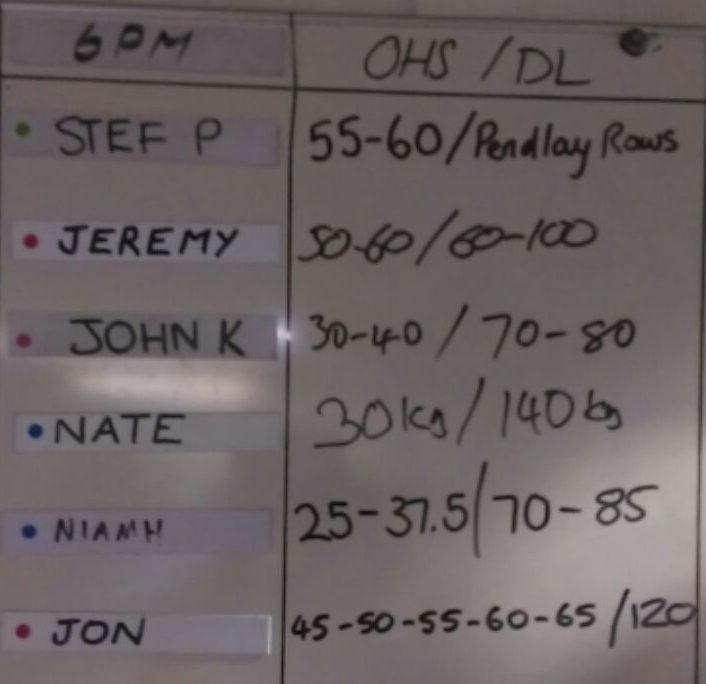 6PM OHS /DL
STEF P 55-60/Pendlay Rows
JEREMY 50-60/60-100
JOHN K 30-40 / 70-80
NATE 30kg/140kg
NIAMH 25-37.5/70-85
JON 45-50-55-60-65 /120